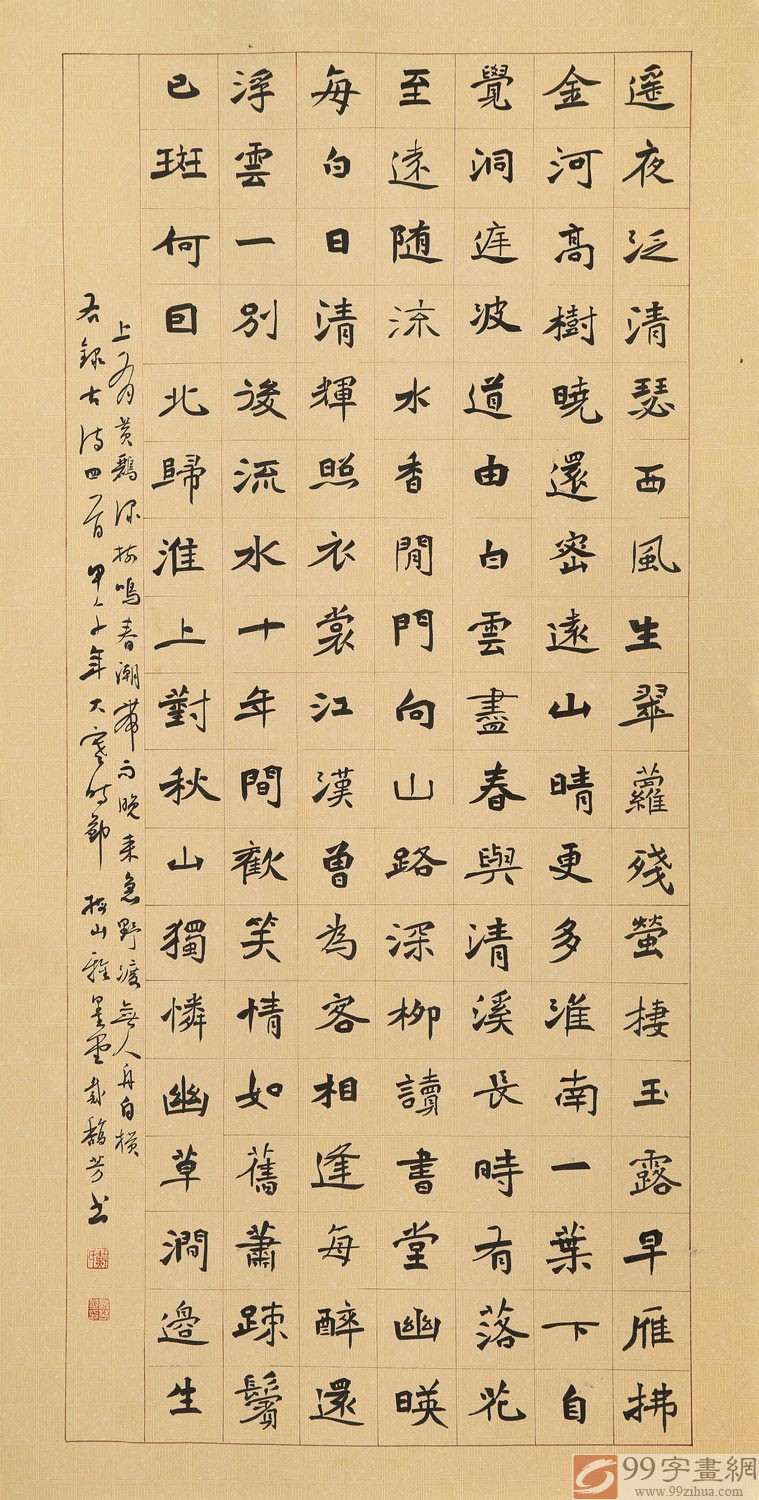 遥夜泛清瑟西風生翠蘿殘螢棲玉露早雁拂
金河高樹曉還密遠山晴更多淮南一葉下自
覺洞庭波道由白雲盡春與清溪長時有落花
至遠随流水香閒門向山路深柳讀書堂幽暎
每白日清輝照衣裳江漢曾為客相逢每醉還
浮雲一別後流水十年間歡笑情如舊蕭疎鬢
已斑何囙北歸淮上對秋山獨憐幽草澗邊生
上有黃鸝深樹鳴春潮帶雨晚來急野渡無人舟自橫
右錄古詩四首 甲午年大寒時節 戴馥芳書
99字畫網
www.99zihua.com